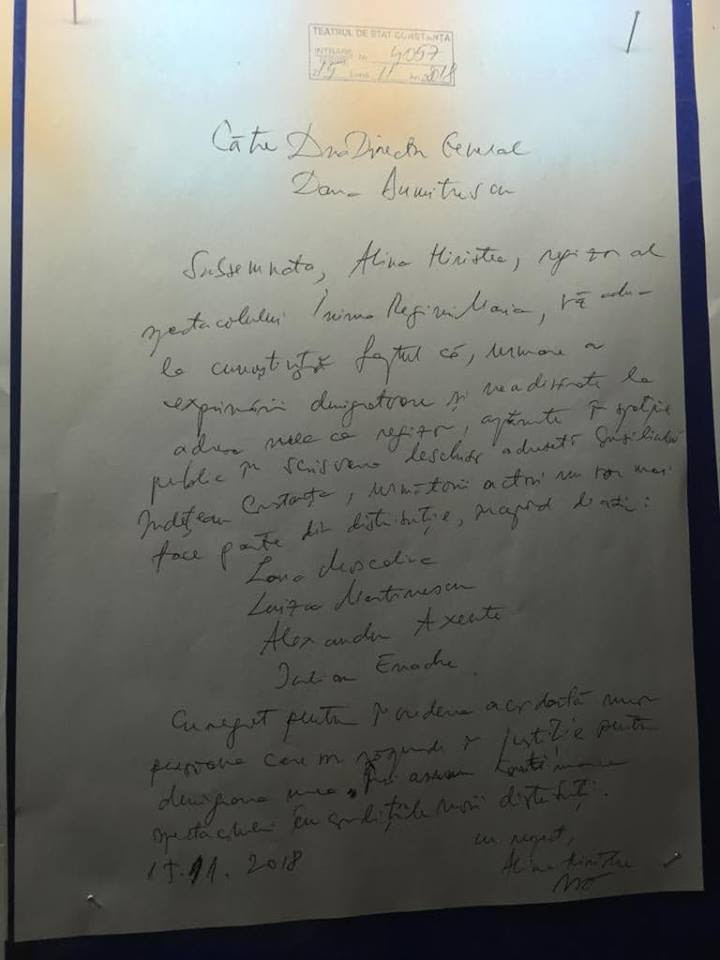 TEATRUL DE STAT CONSTANȚA
INTRARE Nr. 4057
Luna 11 2018
Către Dna Director General
Dana Dumitrescu
Subsemnata, Alina Hiristea, regizor al
spectacolului Inima Reginei Maria, vă aduc
la cunoștință faptul că, urmare a
exprimării denigratoare și neadevărate la
adresa mea ca regizor, apărute în spațiu
public în scrisoarea deschisă adresată Consiliului
Județean Constanța, următorii actori nu vor mai
face parte din distribuție, începând de azi:
Lana Moscaliuc
Luiza Martinescu
Alexandru Axente
Iulian Enache
Cu regret pentru încrederea acordată unor
persoane care vor răspunde în justiție pentru
denigrarea mea, îmi asum continuarea
spectacolului în condițiile noii distribuții.
11.2018
cu respect,
Alina Hiristea